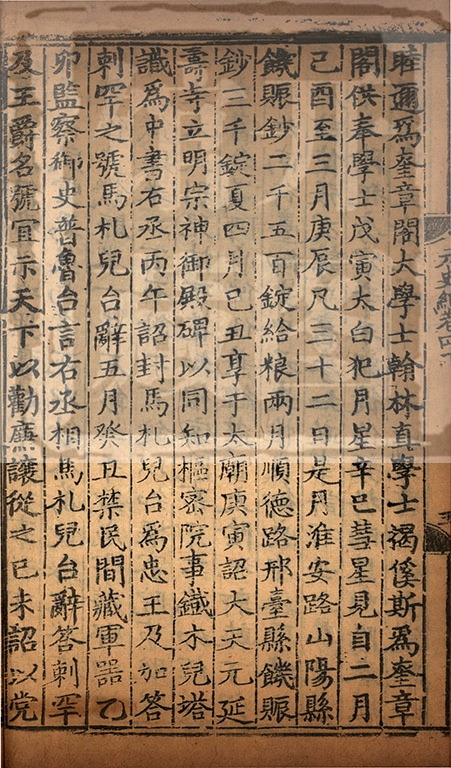 睦爾爲奎章閣大學士翰林直學士揭傒斯爲奎章
閣供奉學士戊寅太白犯月星辛巳彗星見自二月
己酉至三月庚辰凡三十二日是月淮安路山陽縣
饑賑鈔二千五百錠給粮兩月順德路邢臺縣饑賑
鈔三千錠夏四月己丑享于太廟庚寅詔大天元延
壽寺立明宗神御殿碑以同知樞密院事鐵木兒塔
識爲中書右丞丙午詔封馬札兒台爲忠王及加答
剌罕之號馬札兒台辭五月癸丑禁民間藏軍器乙
卯監察御史普魯台言右丞相馬札兒台辭答剌罕
及王爵名號宜示天下以勸廉讓從之已未詔以党
元史紀卷四十